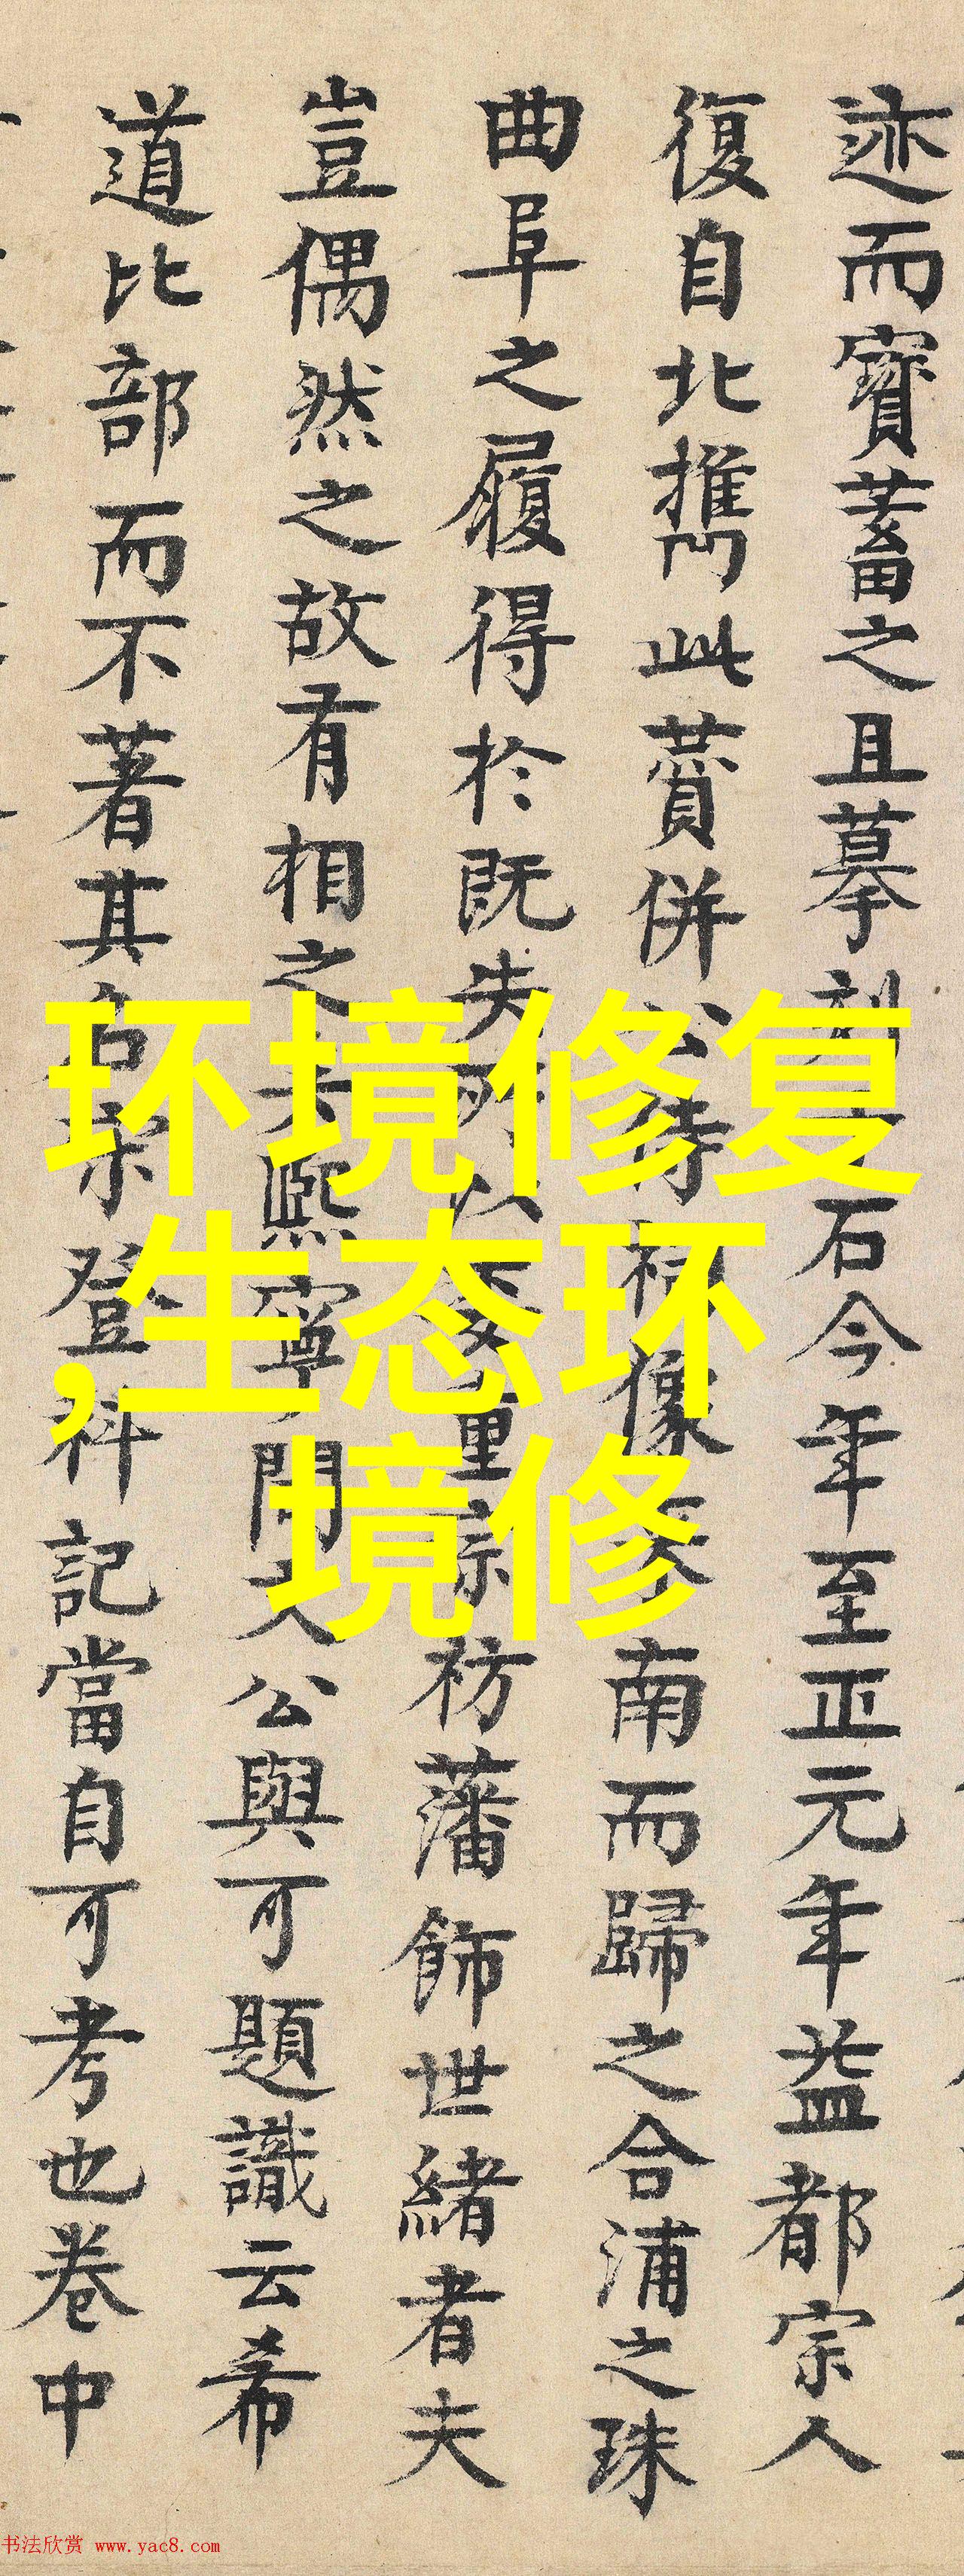 迹而寶蓄之且摹刻石今年至正元年益都宗人
復自北携此賣併公侍祠像南而歸之合浦之珠
曲阜之履得於既失所以重宗祊藩飾世緒者夫
豈偶然之故有相之熙寧間文公與可題識云希
道比部而不著其名登科記當自可考也卷中
环境修复
,生态环
境修
书法欣赏 www.yac8.com